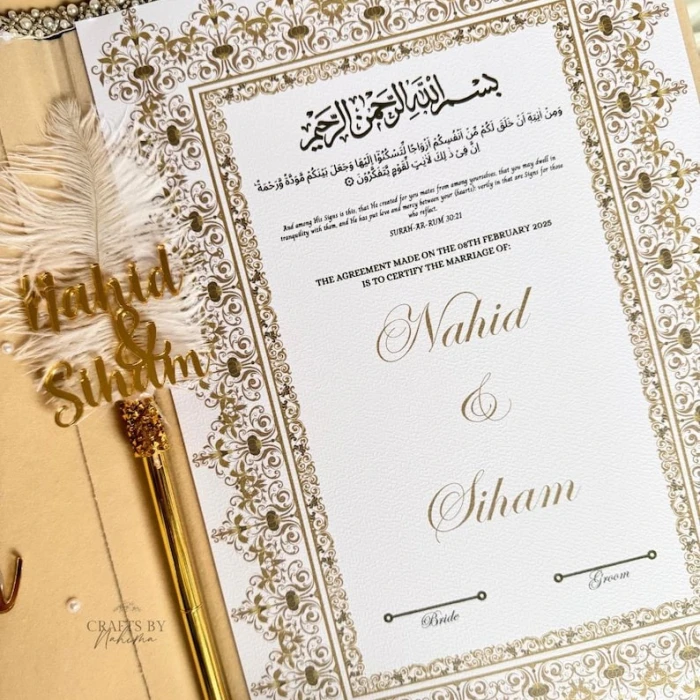 بسم الله الرحمن الرحيم
وَمِنْ اٰيٰتِهٖٓ اَنْ خَلَقَ لَكُمْ مِّنْ اَنْفُسِكُمْ اَزْوَاجًا لِّتَسْكُنُوْٓا اِلَيْهَا وَجَعَلَ بَيْنَكُمْ مَّوَدَّةً وَّرَحْمَةً
اِنَّ فِيْ ذٰلِكَ لَاٰيٰتٍ لِّقَوْمٍ يَّتَفَكَّرُوْنَ
And among His Signs is this, that He created for you mates from among yourselves, that you may dwell in
tranquility with them, and He has put love and mercy between your (hearts): verily in that are Signs for those
who reflect.
SURAH-AR-RUM 30:21
THE AGREEMENT MADE ON THE 08TH FEBRUARY 2025
IS TO CERTIFY THE MARRIAGE OF:
Nahid
&
Siham
Bride
Groom
Nahid
&
Siham
CRAFTS BY
Nahima